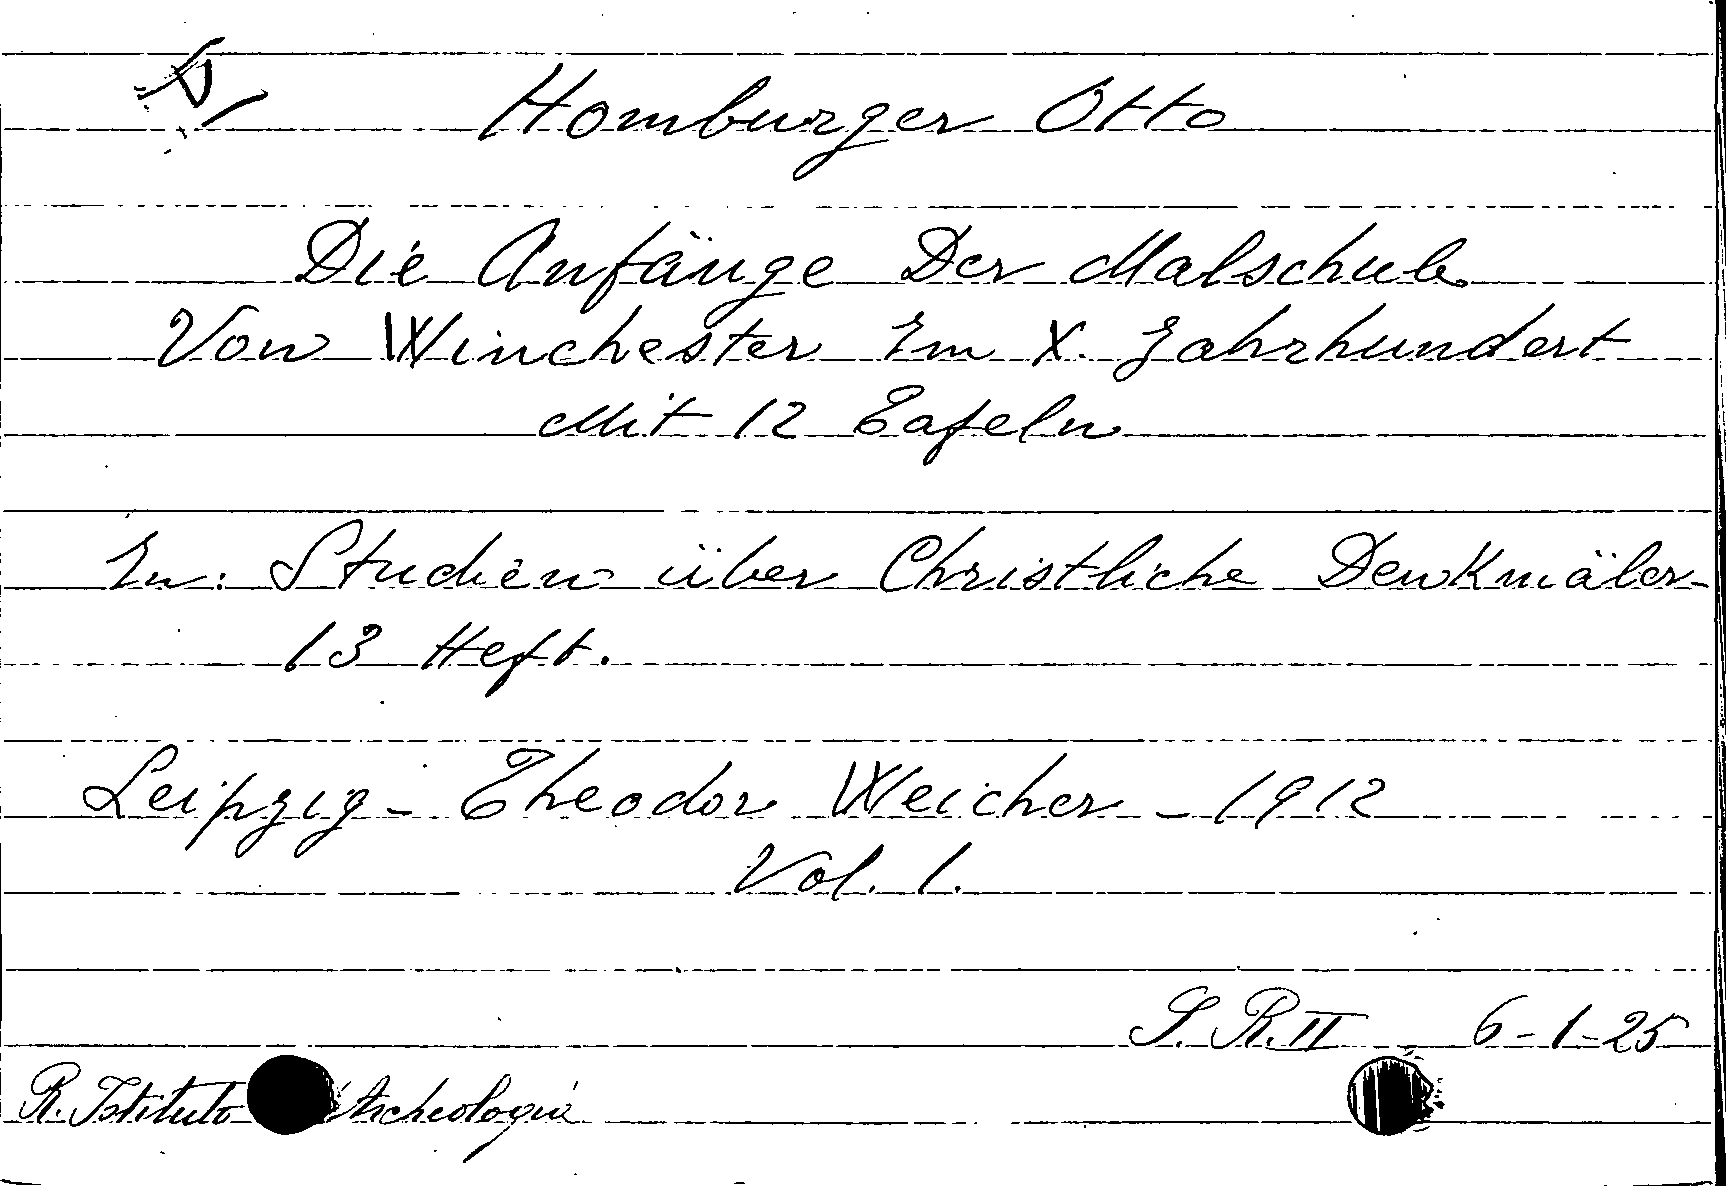 Homburger Otto
Die Anfänge Der Malschule
Von Winchester Im X. Jahrhundert
Mit 12 Tafeln
In: Studien über Christliche Denkmäler-
13 Heft.
Leipzig - Theodor Weicher - 1912
Vol. 1.
S. R. II 6-1-25
R. Istituto Archeologia